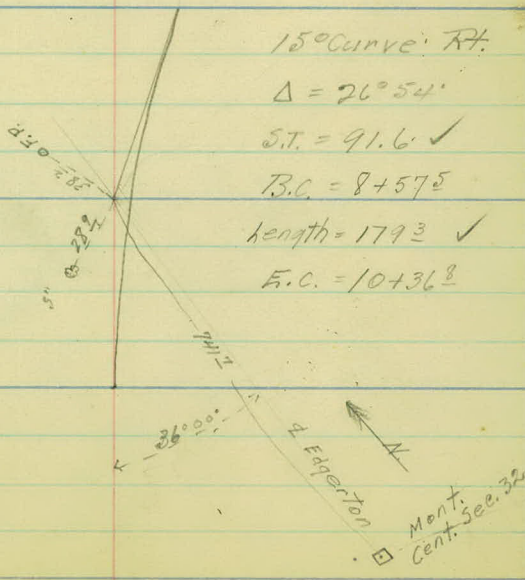 15° Curve Rt.
Δ = 26°54'
S.T. = 91.6 ✓
B.C. = 8+57⁵
Length = 179³ ✓
E.C. = 10+36⁸
O F.P.
28⁹
5"
36°00'
Edgerton
N
Mont.
Cent. Sec. 32